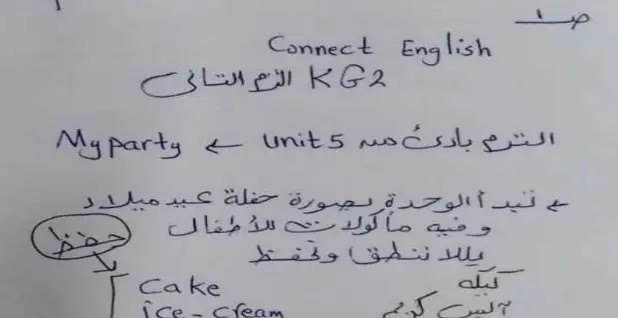 ص ١
Connect English
KG2 الترم الثانى
الترم بادئ من Unit 5 ← My party
← تبدأ الوحدة بصورة حفلة عيد ميلاد
وفيه مأكولات للأطفال
يللا ننطق ونحفظ
حفظ
Cake كيكه
ice-cream آيس كريم